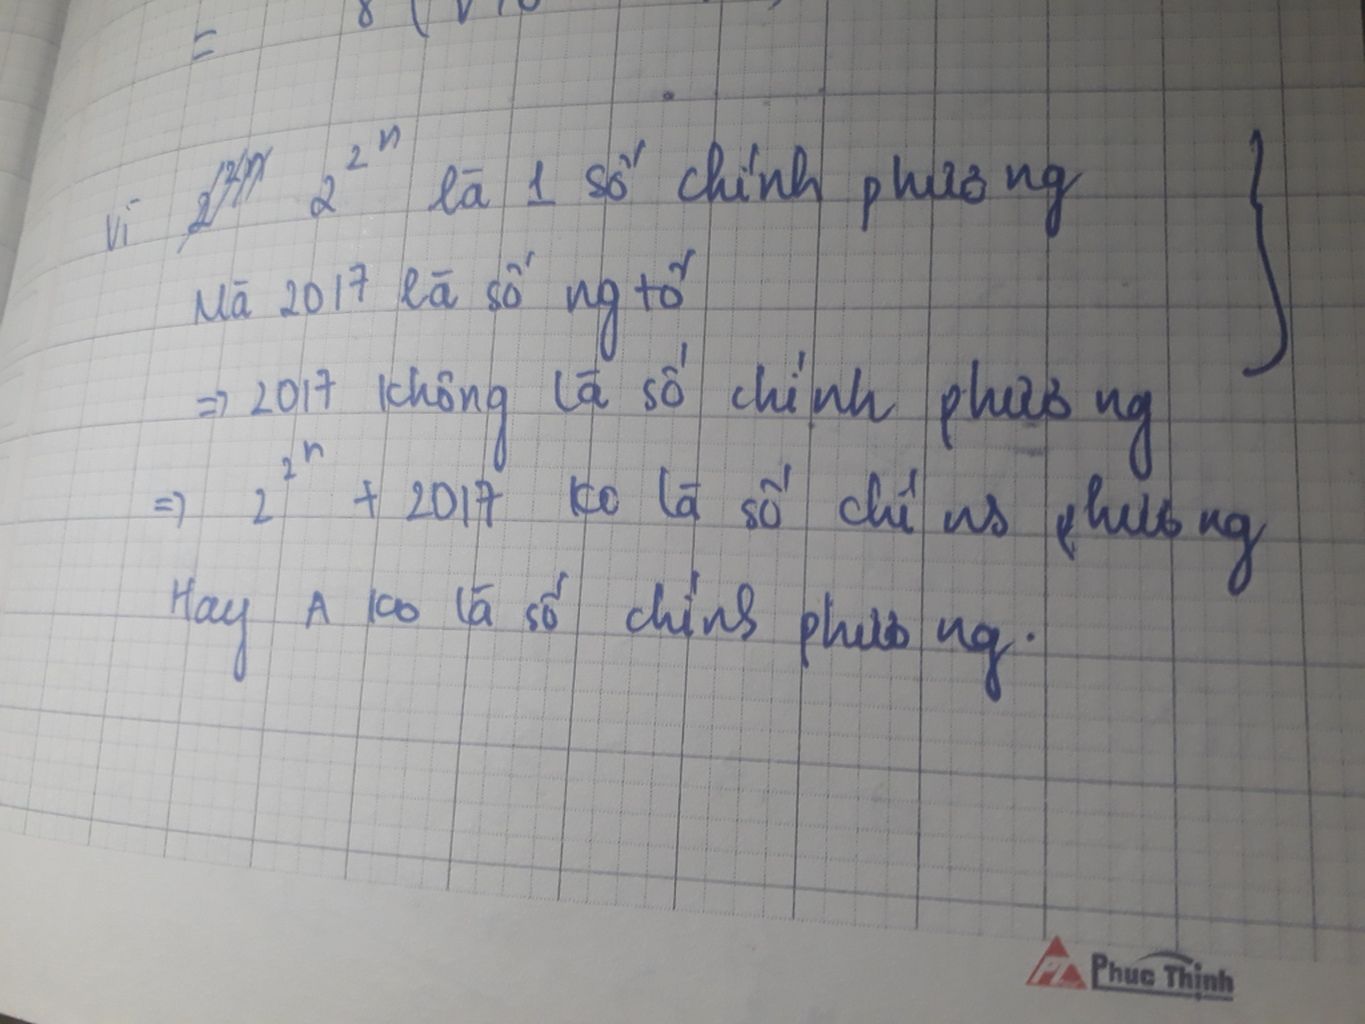 =
Vì 2^{2^n} là 1 số chính phương
Mà 2017 là số ng tố
=> 2017 không là số chính phương
=> 2^{2^n} + 2017 ko là số chính phương
Hay A ko là số chính phương.
PT Phuc Thinh